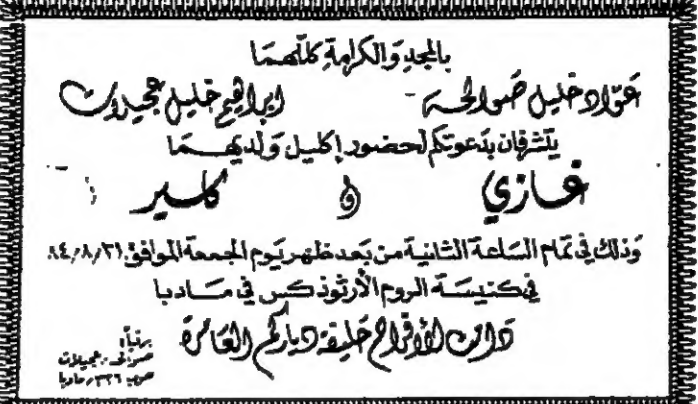 بالمجد والكرامة كللهما
عوّاد خليل صوالحة ابراهيم خليل عجيلات
يتشرفان بدعوتكم لحضور إكليل ولديهما
غازي و كلير
وذلك في تمام الساعة الثانية من بعد ظهر يوم الجمعة الموافق ٨٤/٨/٣١
في كنيسة الروم الأرثوذكس في مادبا
دامت الأفراح حليفة دياركم العامرة
برقياً:
صوالحة، عجيلات
ص.ب ٣٣٦، مادبا